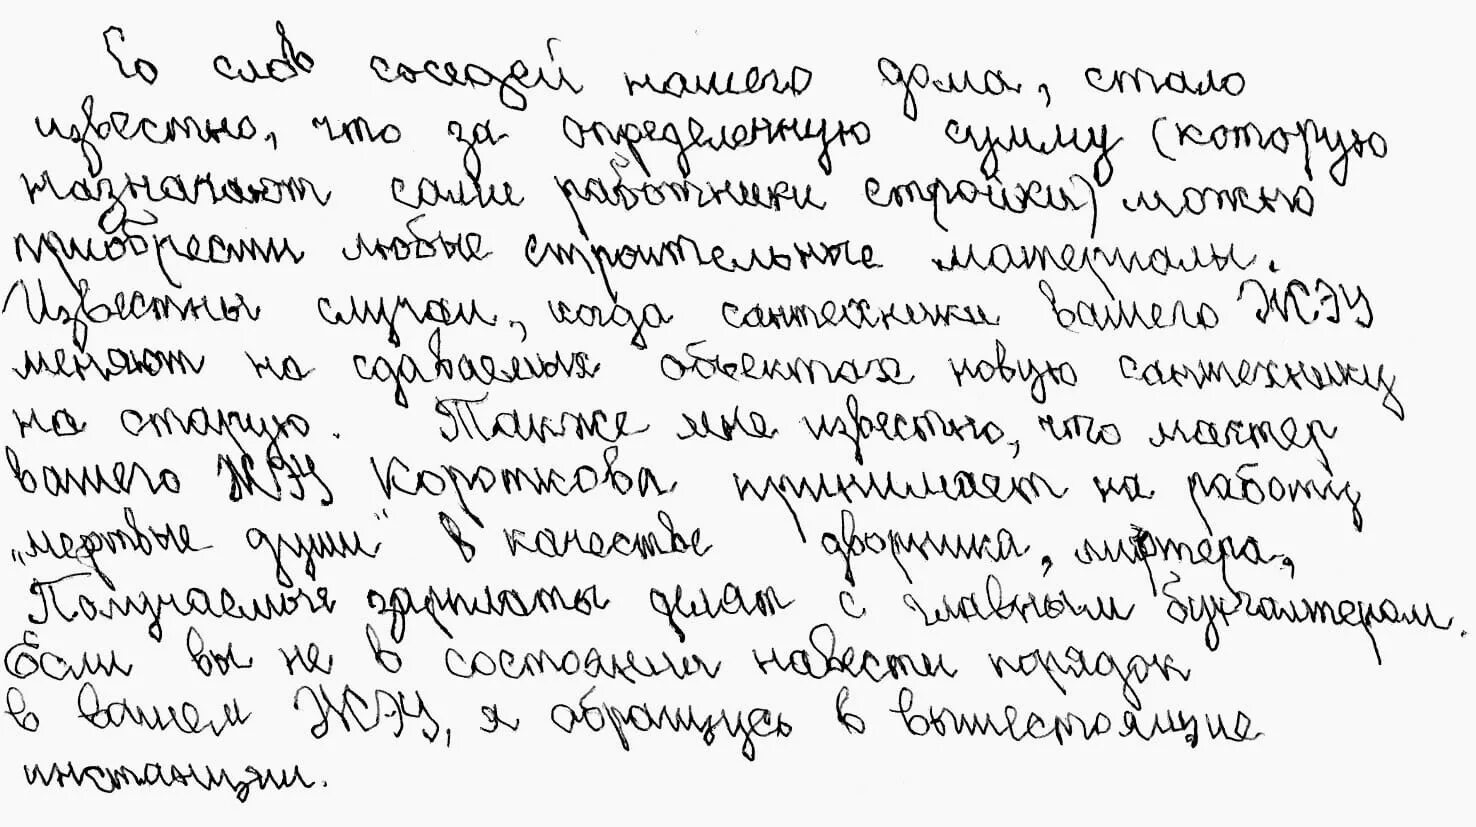 Со слов соседей нашего дома, стало
известно, что за определенную сумму (которую
назначают сами работники стройки) можно
приобрести любые строительные материалы.
Известны случаи, когда сантехники вашего ЖЭУ
меняют на сдаваемых объектах новую сантехнику
на старую. Также мне известно, что мастер
вашего ЖЭУ Короткова принимает на работу
„мертвые души" в качестве дворника, лифтера,
Получаемые зарплаты делят с главным бухгалтером.
Если вы не в состоянии навести порядок
в вашем ЖЭУ, я обращусь в вышестоящие
инстанции.